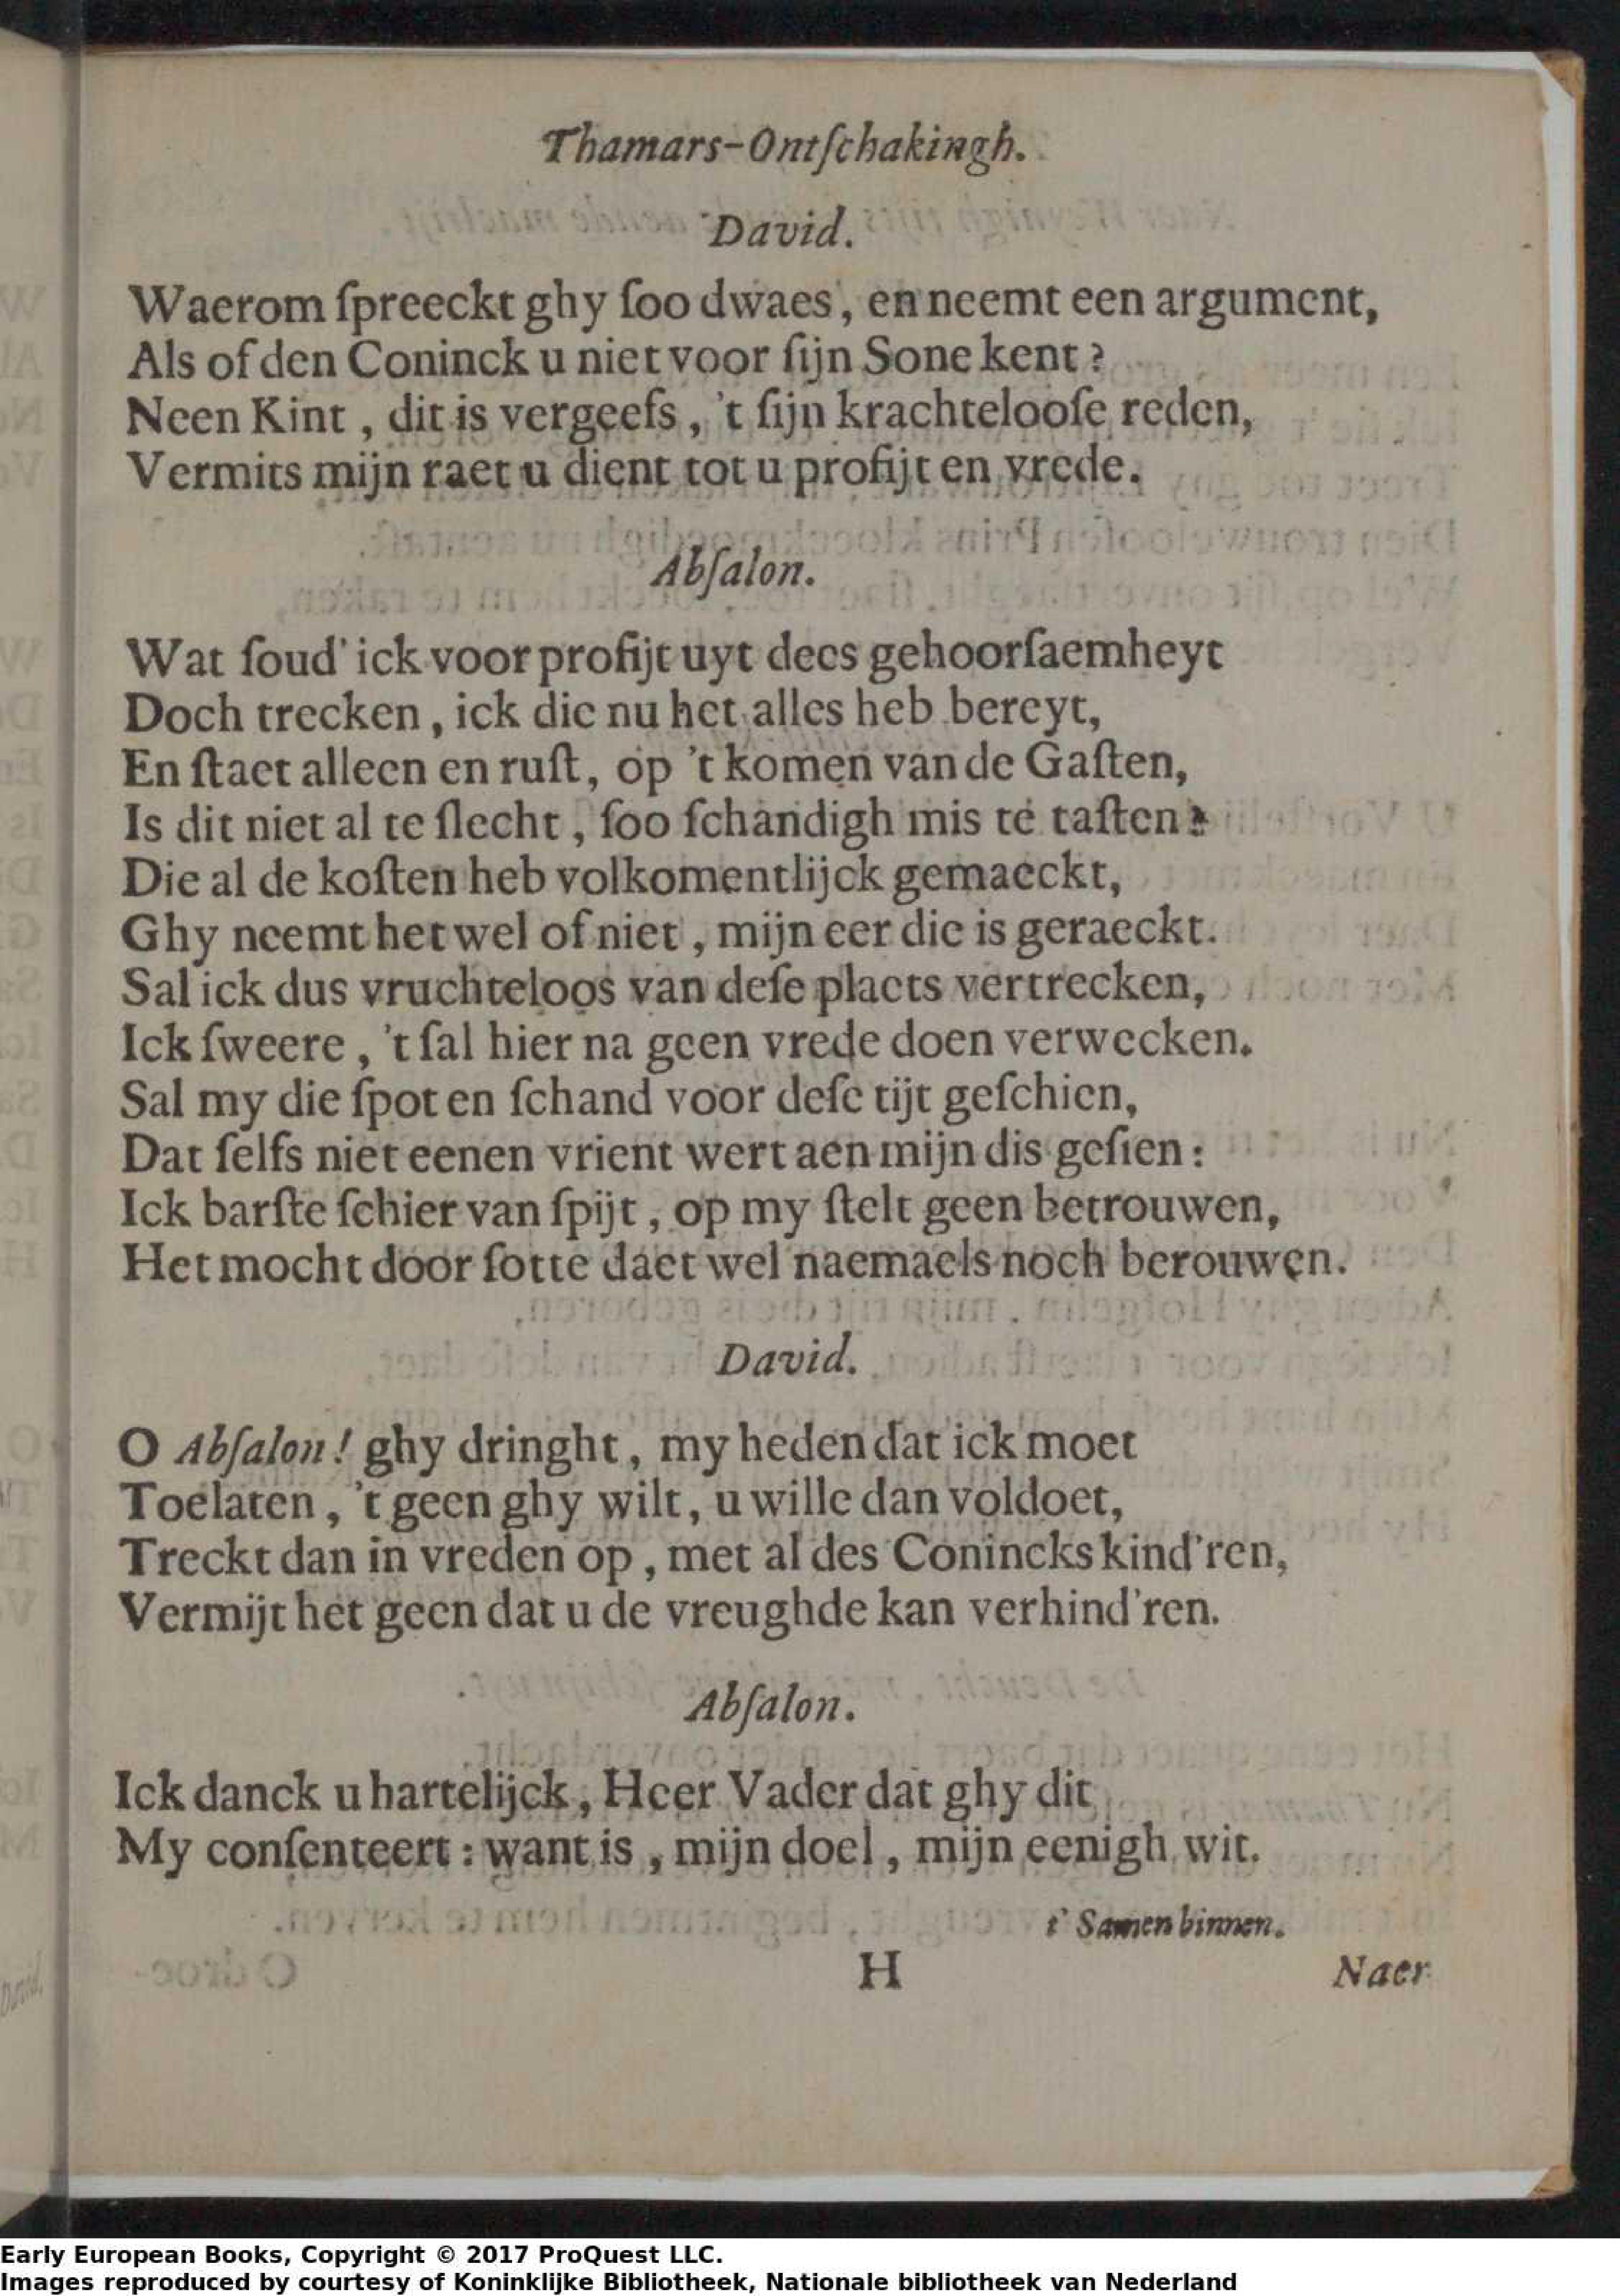 Thamars-Ontſchakingh.
David.
Waerom ſpreeckt ghy ſoo dwaes, en neemt een argument,
Als of den Coninck u niet voor ſijn Sone kent?
Neen Kint, dit is vergeefs, 't ſijn krachteloofe reden,
Vermits mijn raet u dient tot u profijt en vrede.
Abſalon.
Wat ſoud' ick voor profijt uyt dees gehoorſaemheyt
Doch trecken, ick die nu het alles heb bereyt,
En ſtaet alleen en ruſt, op 't komen van de Gaſten,
Is dit niet al te ſlecht, ſoo ſchandigh mis te taſten?
Die al de koſten heb volkomentlijck gemaeckt,
Ghy neemt het wel of niet, mijn eer die is geraeckt.
Sal ick dus vruchteloos van deſe plaets vertrecken,
Ick ſweere, 't ſal hier na geen vrede doen verwecken.
Sal my die ſpot en ſchand voor deſe tijt geſchien,
Dat ſelfs niet eenen vrient wert aen mijn dis geſien:
Ick barſte ſchier van ſpijt, op my ſtelt geen betrouwen,
Het mocht door ſotte daet wel naemaels noch berouwen.
David.
O Abſalon! ghy dringht, my heden dat ick moet
Toelaten, 't geen ghy wilt, u wille dan voldoet,
Treckt dan in vreden op, met al des Conincks kind'ren,
Vermijt het geen dat u de vreughde kan verhind'ren.
Abſalon.
Ick danck u hartelijck, Heer Vader dat ghy dit
My conſenteert: want is, mijn doel, mijn eenigh wit.
t' Samen binnen.
H
Naer
Early European Books, Copyright © 2017 ProQuest LLC.
Images reproduced by courtesy of Koninklijke Bibliotheek, Nationale bibliotheek van Nederland